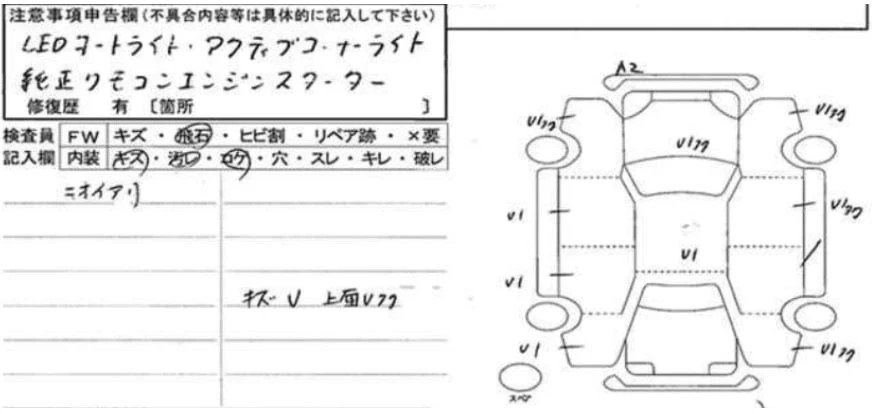 注意事項申告欄(不具合内容等は具体的に記入して下さい)
LEDオートライト・アクティブコーナーライト
純正リモコンエンジンスターター
修復歴 有 〔箇所 〕
検査員 FW キズ ・ 飛石 ・ ヒビ割 ・ リペア跡 ・ ×要
記入欄 内装 キズ ・ 汚レ ・ コゲ ・ 穴 ・ スレ ・ キレ ・ 破レ
ニオイアリ
キズ U 上面Uフク
A2
U1フク
U1フク
U1フク
U1
U1フク
U1
U1
U1
U1フク
スペア